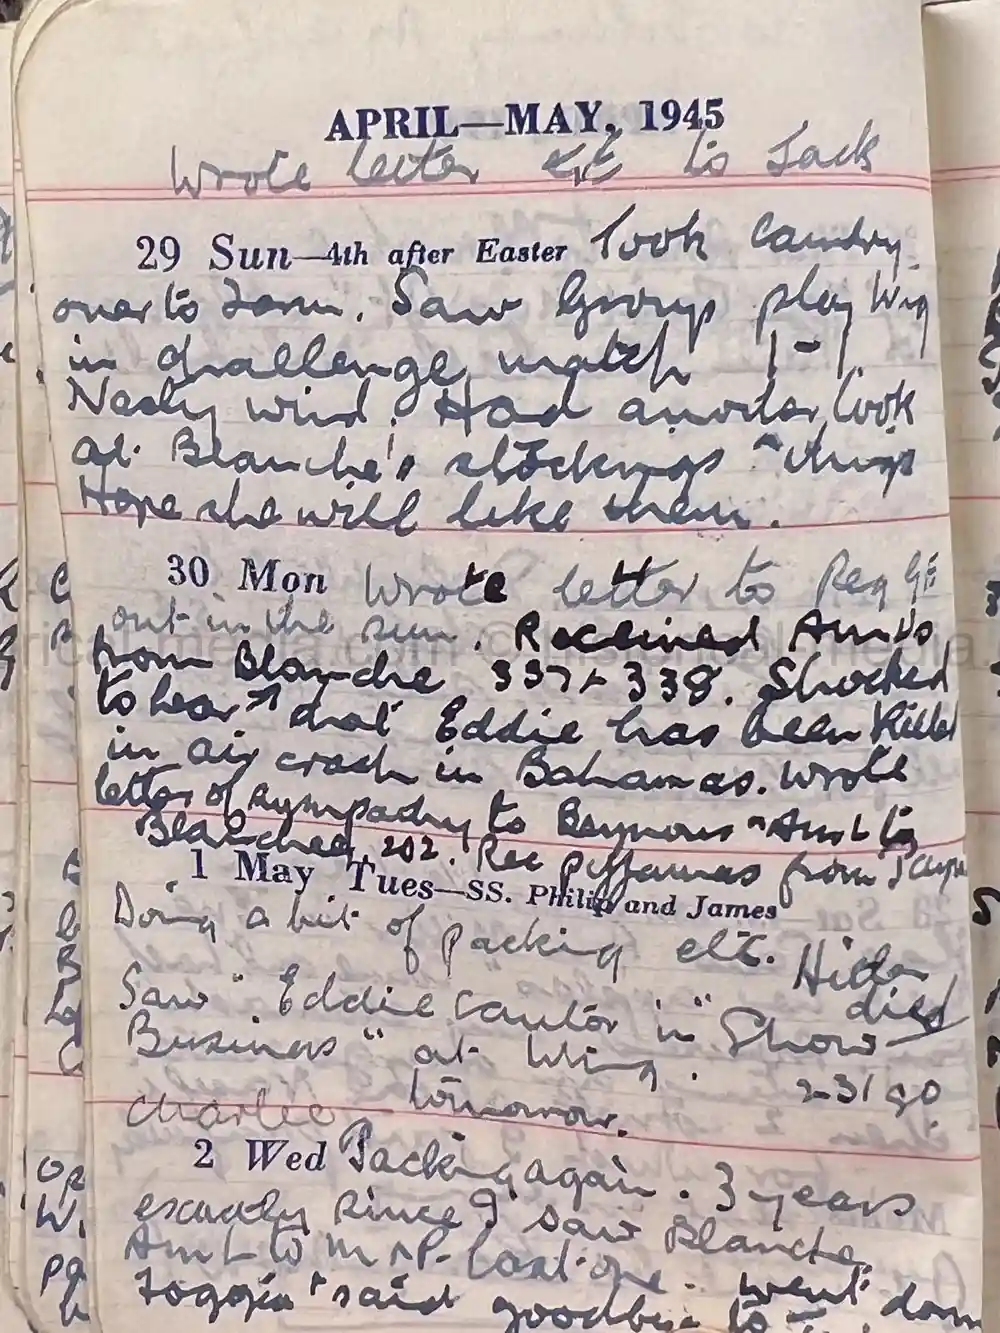 APRIL—MAY, 1945
Wrote letter etc to Jack
29 Sun—4th after Easter Took laundry
over to Farm. Saw Group play Wing
in challenge match 1-1.
Nasty wind. Had another look
at Blanche's stockings & things
Hope she will like them.
30 Mon Wrote letter to Reg
out in the sun. Received Am Ls
from Blanche 337 + 338. Shocked
to hear that Eddie has been killed
in air crash in Bahamas. Wrote
letter of sympathy to & Am L to
Blanche 202. Rec pyjamas from
1 May Tues—SS. Philip and James
Doing a bit of packing etc. Hitler
died
Saw "Eddie Cantor in "Show
Business" at Wing.
2-31 go
Charlie tomorrow.
2 Wed Packing again. 3 years
exactly since I saw Blanche.
Am L to M & P. Last one. Went down
Foggia & said goodbye to